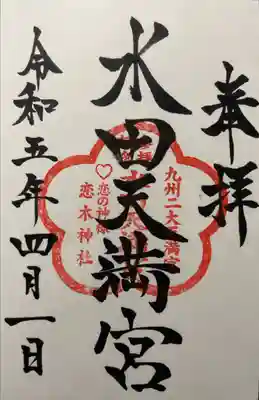 奉拝
水田天満宮
九州二大天満宮
♡恋の神様
恋木神社
令和五年四月一日